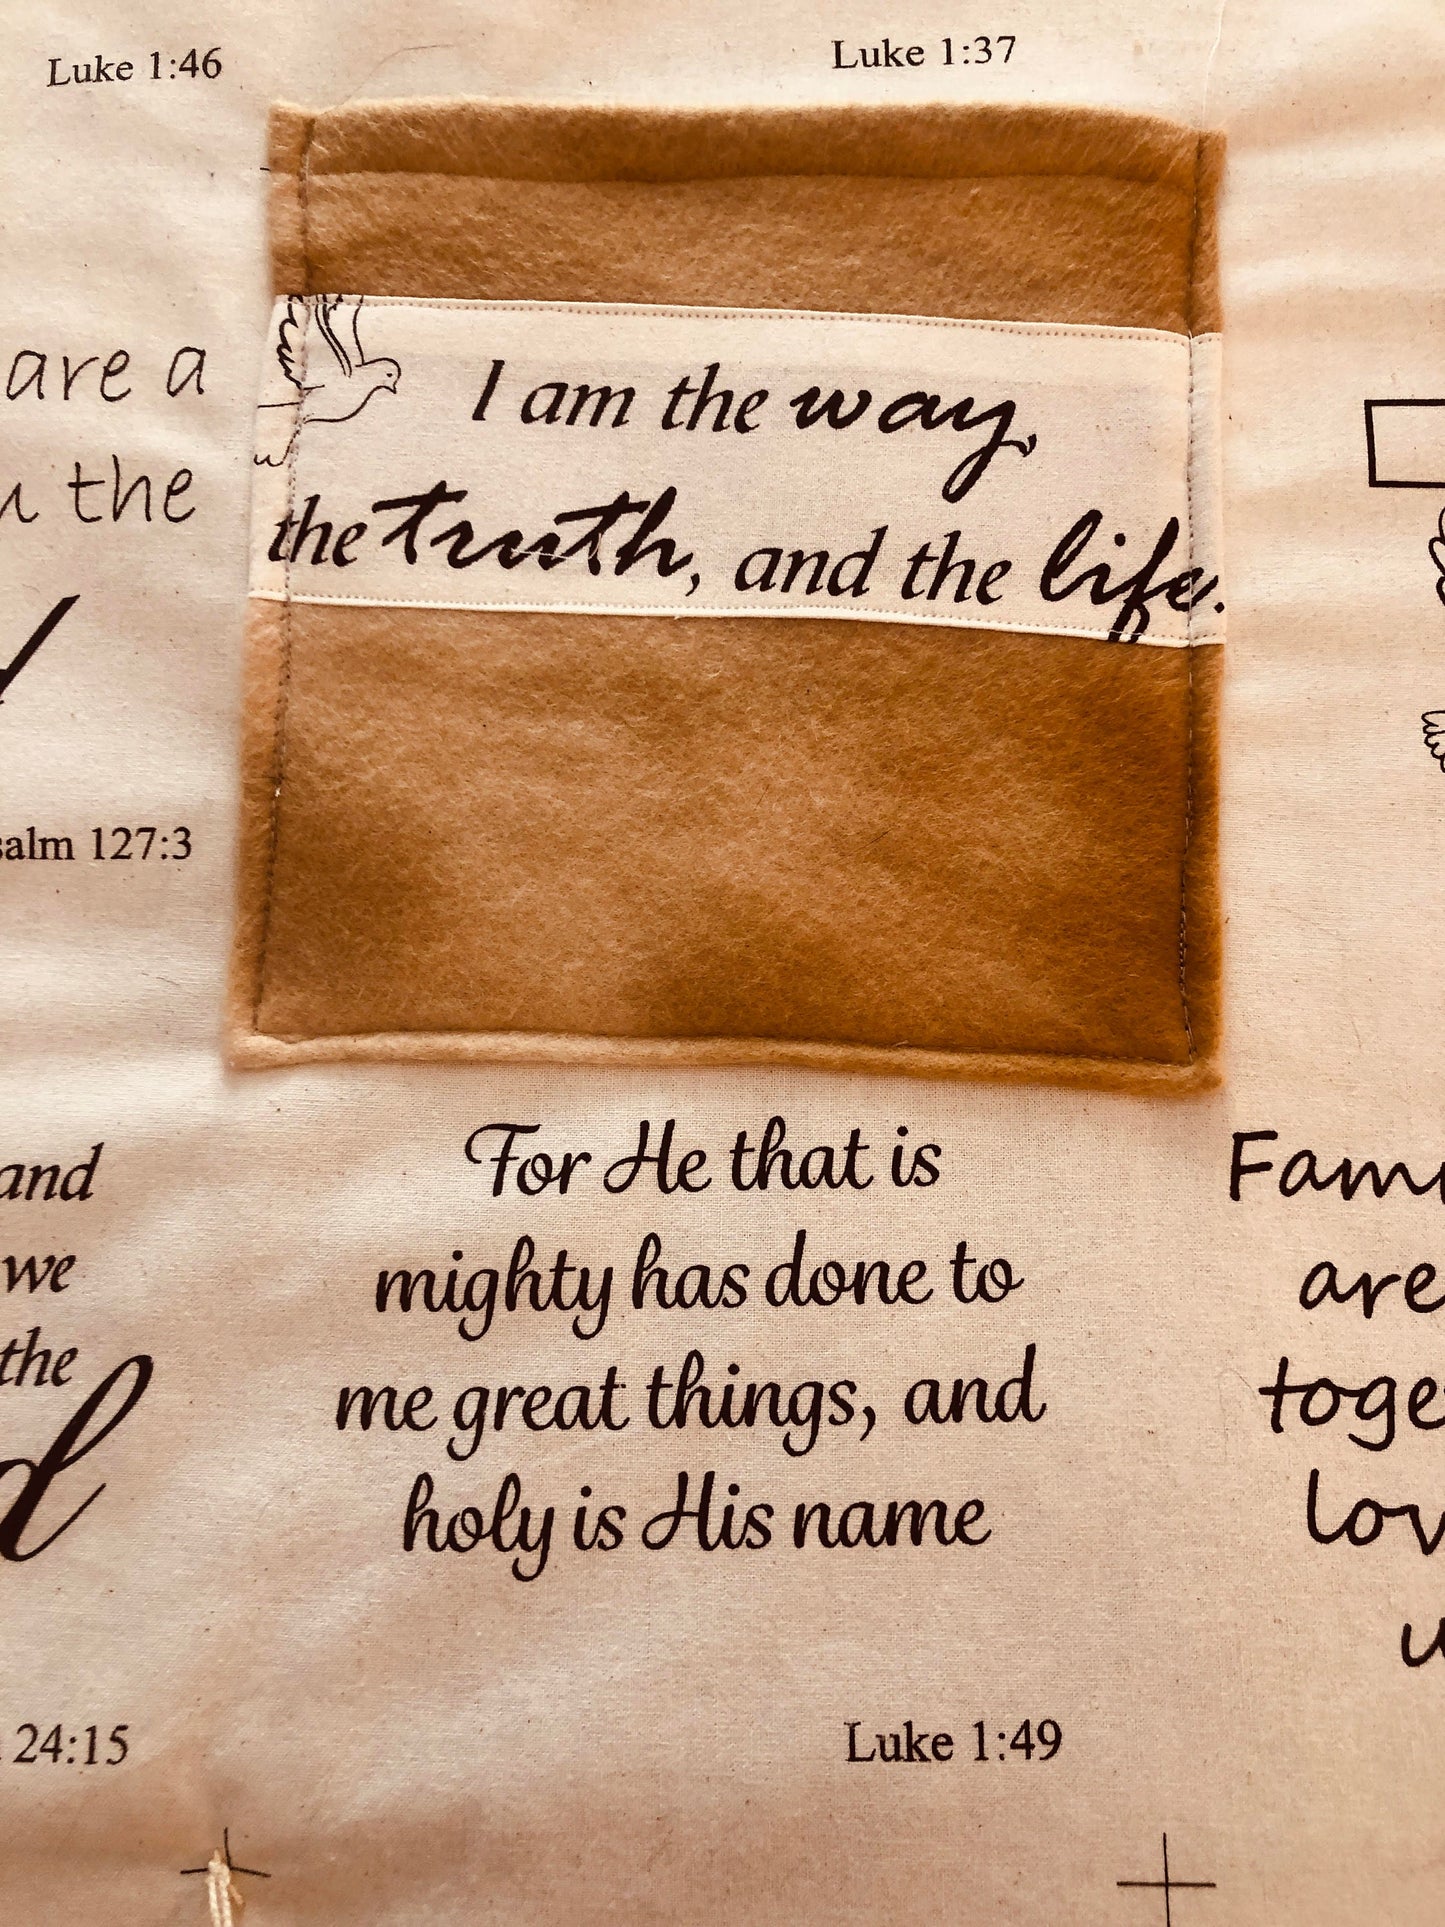 Luke 1:46
Luke 1:37
are a
the
127:3
I am the way,
the truth, and the life.
and
we
the
24:15
For He that is
mighty has done to
me great things, and
holy is His name
Luke 1:49
are